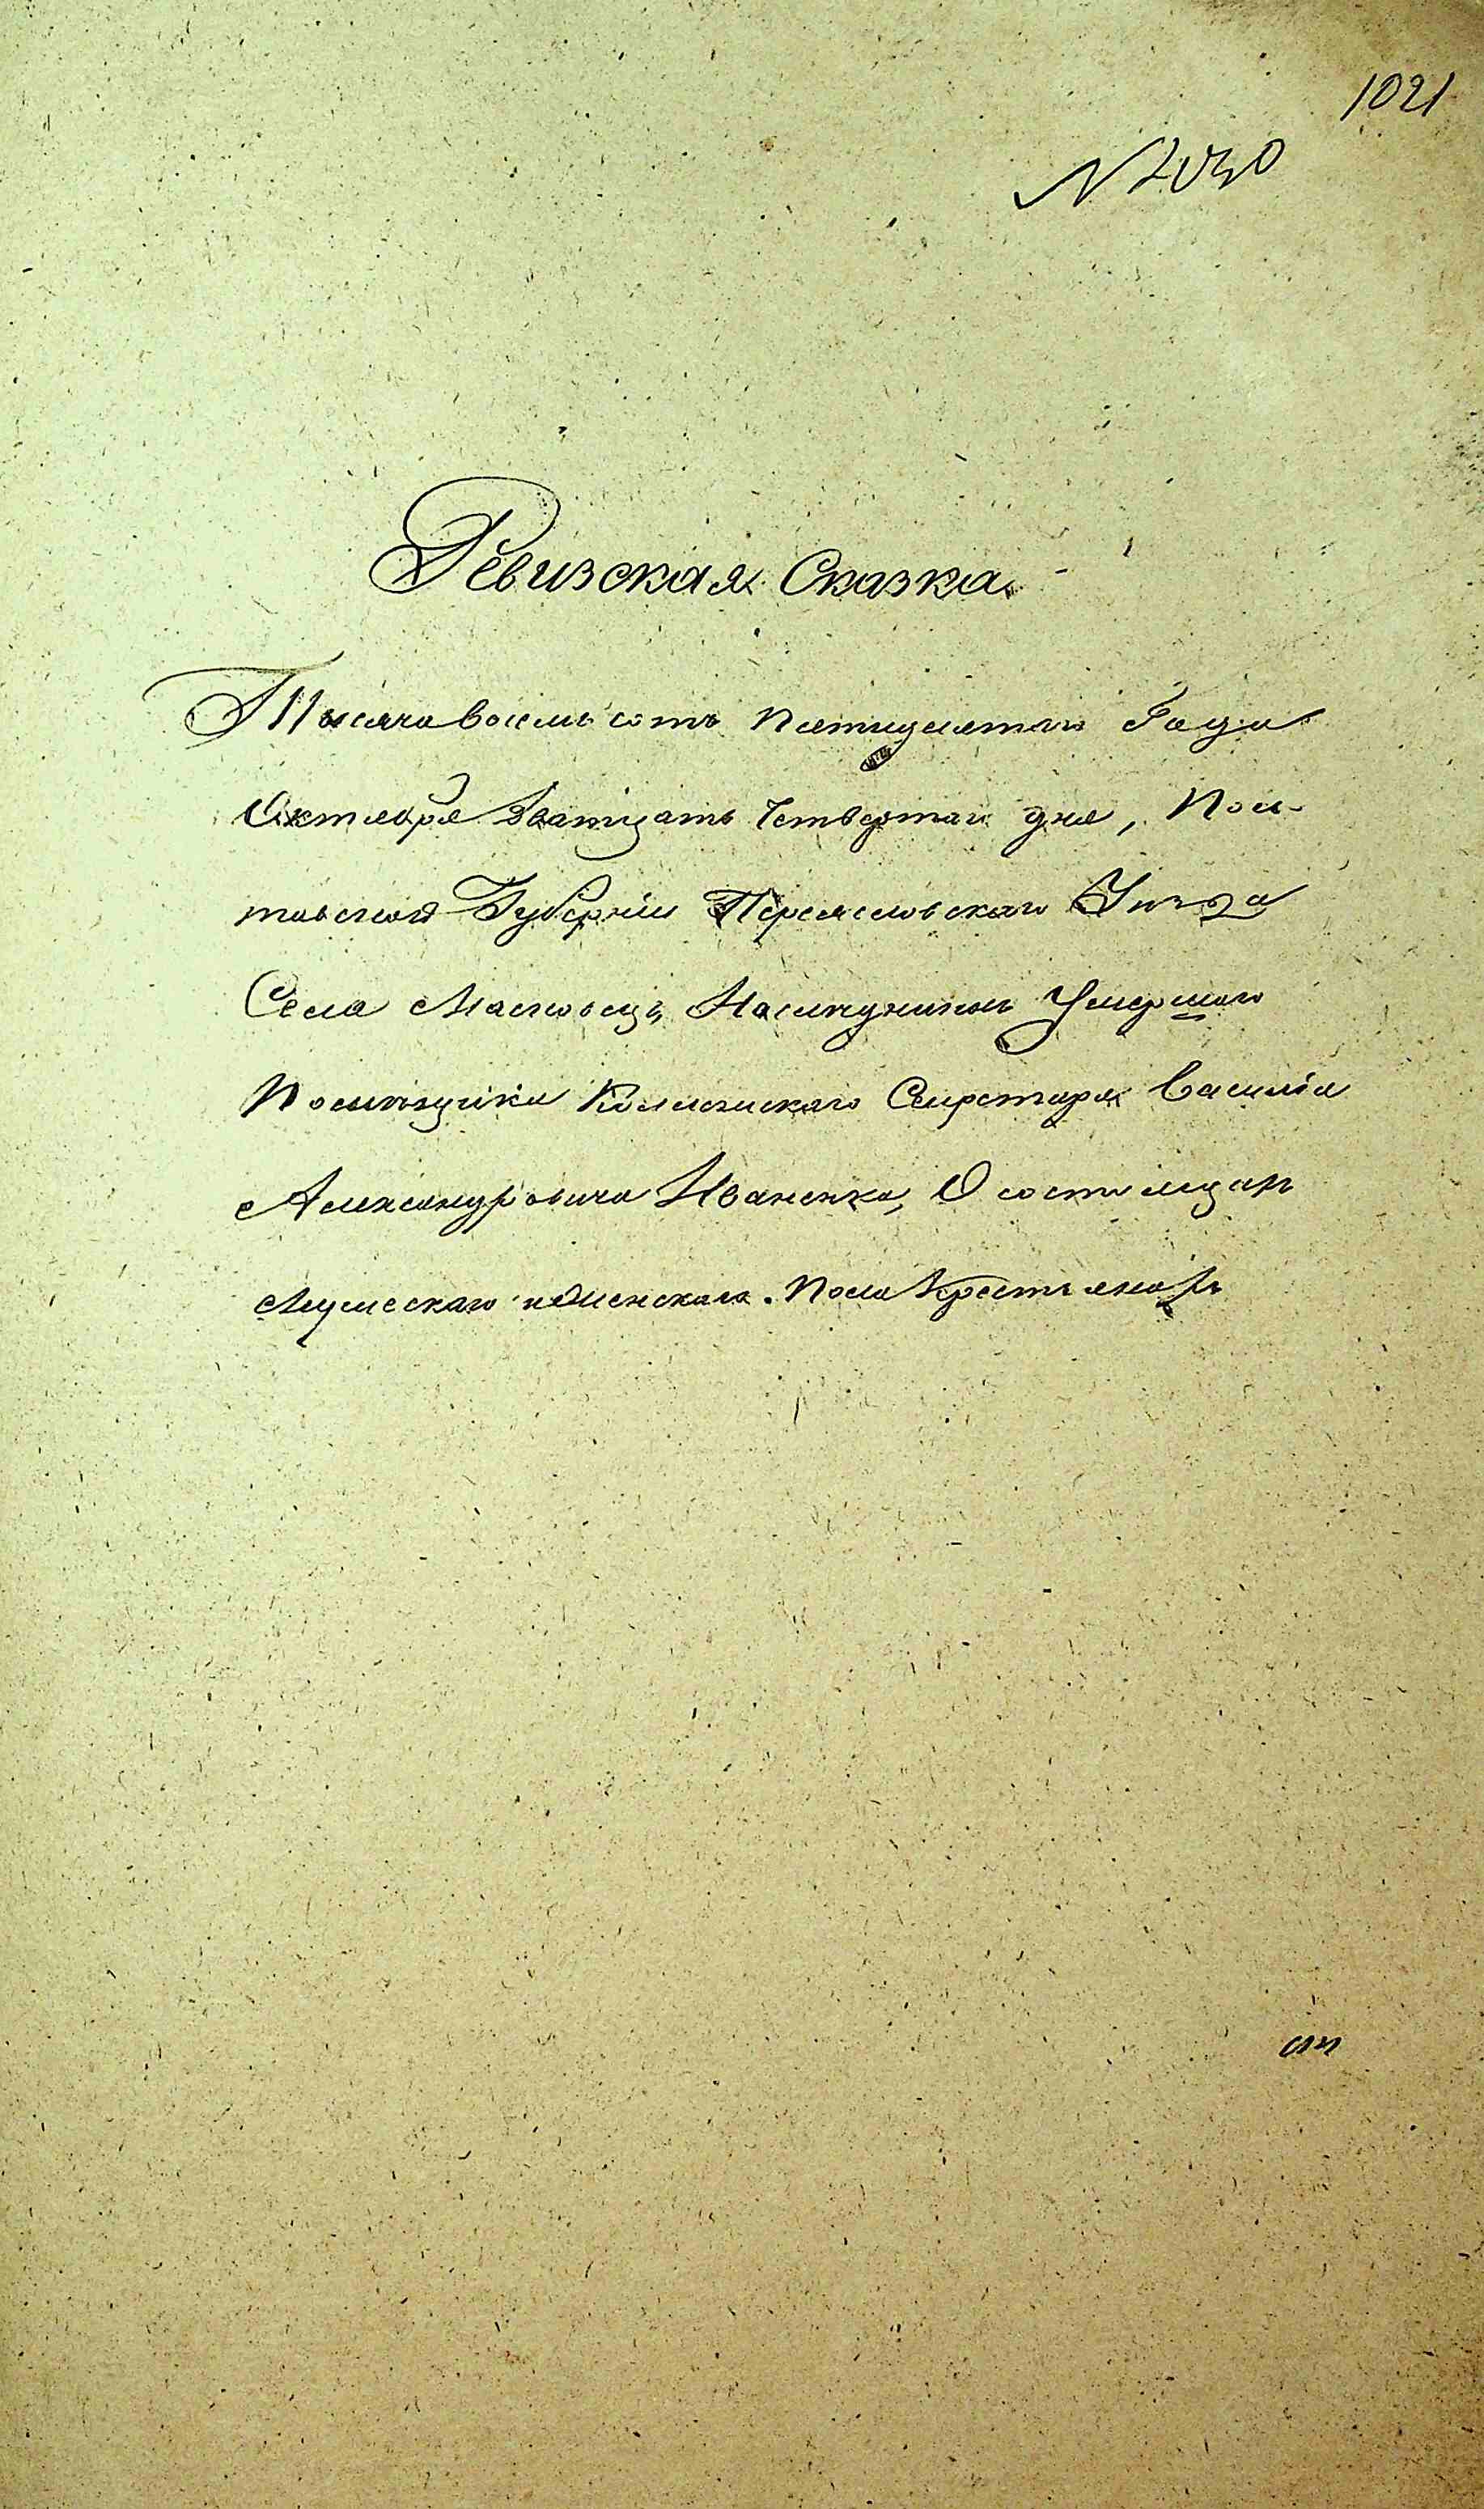 1021
Ревизская Сказка
Тысяча восемь сотъ пятидесятаго Года
Октября дватцать Четвертаго дня, Пол-
тавской Губерніи Переясловскаго Уѣзда
Села Масковецъ, Наслѣдниковъ Умершаго
Помѣщика Колежскаго Секретаря Василія
Александровича Иваненка, О состоящихъ
Мужескаго и Женскаго Пола Крестьянахъ